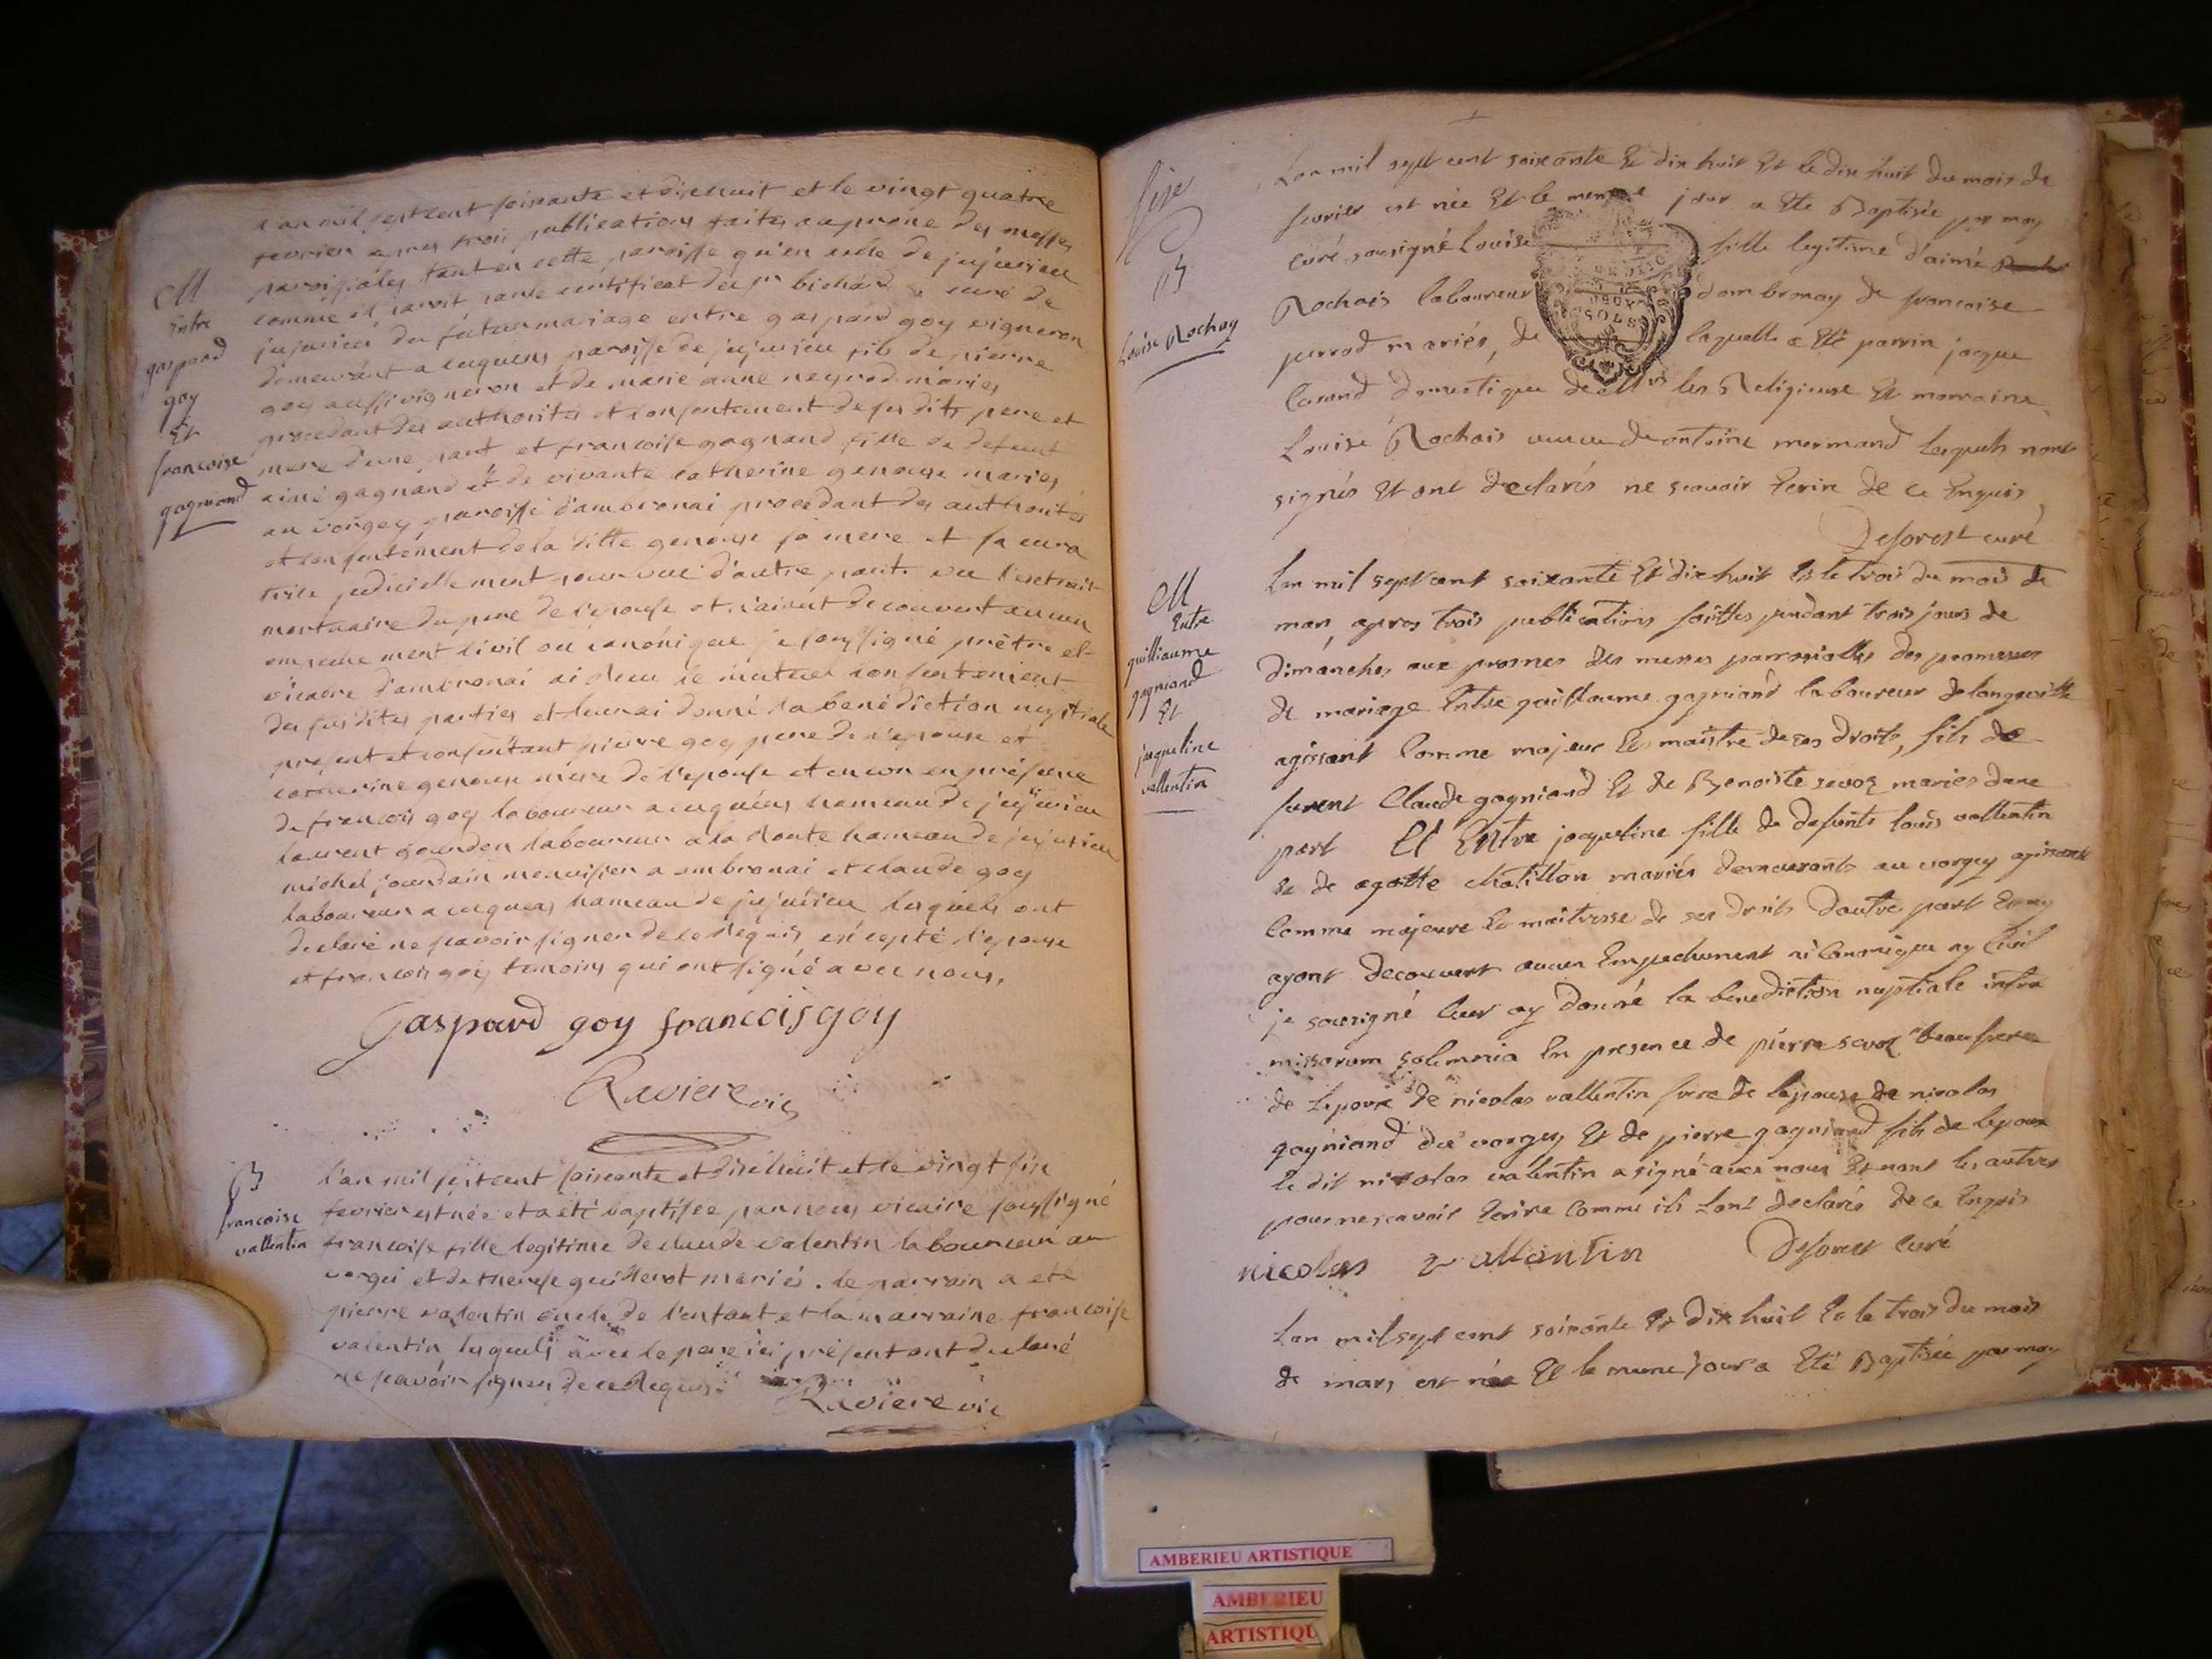 M
Entre
gaspard
goy
Et
francoise
gagniand
L'an mil sept cent soixante et dixhuit et le vingt quatre
fevrier apres trois publications faites au prone des messes
paroissiales tant en cette paroisse qu'en celle de jujurieu
comme il paroit par le certificat du sr bichard curé de
jujurieu du futur mariage entre gaspard goy vigneron
demeurant a cuquens paroisse de jujurieu fils de pierre
goy aussi vigneron et de marie anne neyrod mariés
procedant des authorités et consentement de ses dits pere et
mere d'une part et francoise gagnand fille de defunt
aimé gagnand et de vivante catherine genouse mariés
au vorgey paroisse d'ambronai procedant des authorités
et consentement de la ditte genouse sa mere et sa cura
trice judiciellement pourvue d'autre part. vu l'extrait
mortuaire du pere de l'epouse et n'aiant decouvert aucun
empechement civil ou canonique je soussigné prêtre et
vicaire d'ambronai ai recu le mutuel consentement
des susdites parties et leur ai donné la benédiction nuptiale
present et consentant pierre goy pere de l'epoux et
catherine genouse mere de l'epouse et encor en présence
de francois goy laboureur a cuquens hameau de jujurieu
laurent gourdon laboureur a la route hameau de jujurieu
michel jourdain menuisier a ambronai et claude goy
laboureur a cuquens hameau de jujurieu lesquels ont
declaré ne scavoir signer de ce requis excepté l'epoux
et francois goy temoins qui ont signé avec nous.
Gaspard goy francois goy
Raviere vic
B
francoise
vallentin
L'an mil sept cent soixante et dixhuit et le vingt six
fevrier est née et a été baptisée par nous vicaire soussigné
francoise fille legitime de claude valentin laboureur au
vorgei et de therese guillerot mariés. le parrain a eté
pierre valentin oncle de l'enfant et la marraine francoise
valentin lesquels avec le pere ici présent ont declaré
ne scavoir signer de ce requis.
Raviere vic
six
B
Louise Rochay
Lan mil sept cent soixante Et dix huit Et le dix huit du mois de
fevrier est née Et le meme jour a Eté Baptisée par moy
curé sousigné Louise fille legitime d'aimé
Rochais laboureur dambrnay de francoise
perrod mariés, de laquelle a Eté parrin jacque
domestique de Mrs les Religieux Et marraine
Louise Rochais veuve de antoine mermand lesquels nont
signés Et ont declarés ne scavoir Ecrire de ce Enquis
Deforest curé
M
Entre
guilliaume
gagniand
Et
jaqueline
vallentin
Lan mil sept cent soixante Et dix huit Et le trois du mois de
mars, apres trois publications faittes pendant trois jours de
dimanches aux prosnes des messes parrossialles des promesses
de mariage Entre guillaume gagniand laboureur de longeville
agissant Comme majeur Et maitre de ses droits, fils de
furent Claude gagniand Et de Benoiste sevoz mariés dune
part Et Entre jacqueline fille de defunts louis vallentin
Et de agathe chatillon mariés demeurants au vorgey agissante
Comme majeure Et maitresse de ses droits dautre part Et ny
ayant decouvert aucun Empechement ni Canonique ny Civil
je sousigné leur ay donné la benediction nuptiale intra
missarum solemnia En presence de pierre sevoz beaufrere
de Lepoux de nicolas vallentin frere de lepouse de nicolas
gagniand du vorgey Et de pierre gagniand fils de lepoux
le dit nicolas valentin a signé avec nous Et nont les autres
pour ne scavoir Ecrire Comme ils Lont declarés de ce Enquis
nicolas vallantin Deforest Curé
Lan mil sept cent soixante Et dix huit Et le trois du mois
de mars est née Et le meme jour a Eté Baptisée par moy
AMBERIEU ARTISTIQUE
AMBERIEU
ARTISTIQU